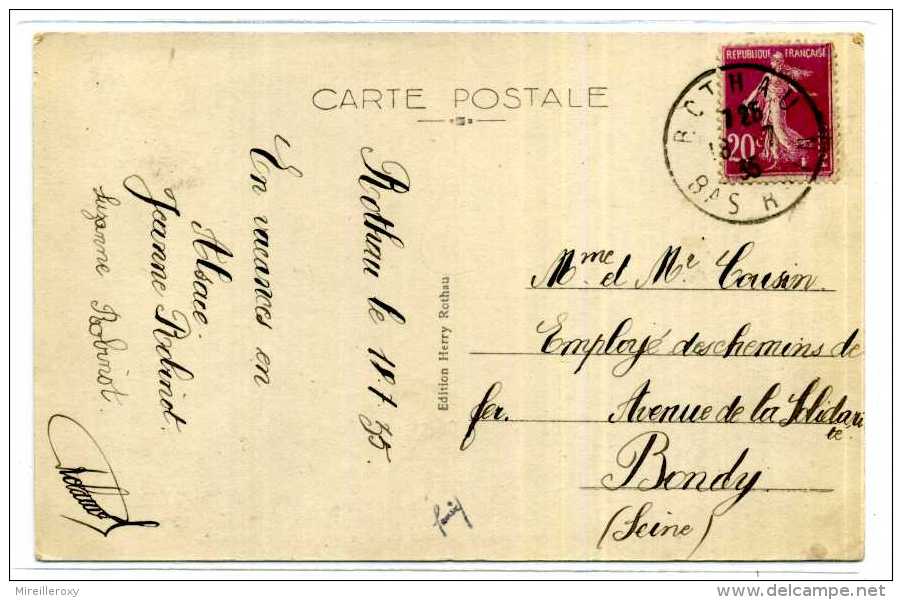 CARTE POSTALE
REPUBLIQUE FRANÇAISE
20c
ROTHAU
7 25
18 7
35
BAS R
Rothau le 18.7.35.
En vacances en
Alsace.
Jeanne Robinot.
Suzanne Robinot.
Edition Herry Rothau
Mme et Mr Cousin.
Employé des chemins de
fer. Avenue de la Solidari
té
Bondy
(Seine)
Mireilleroxy
delcampe.net